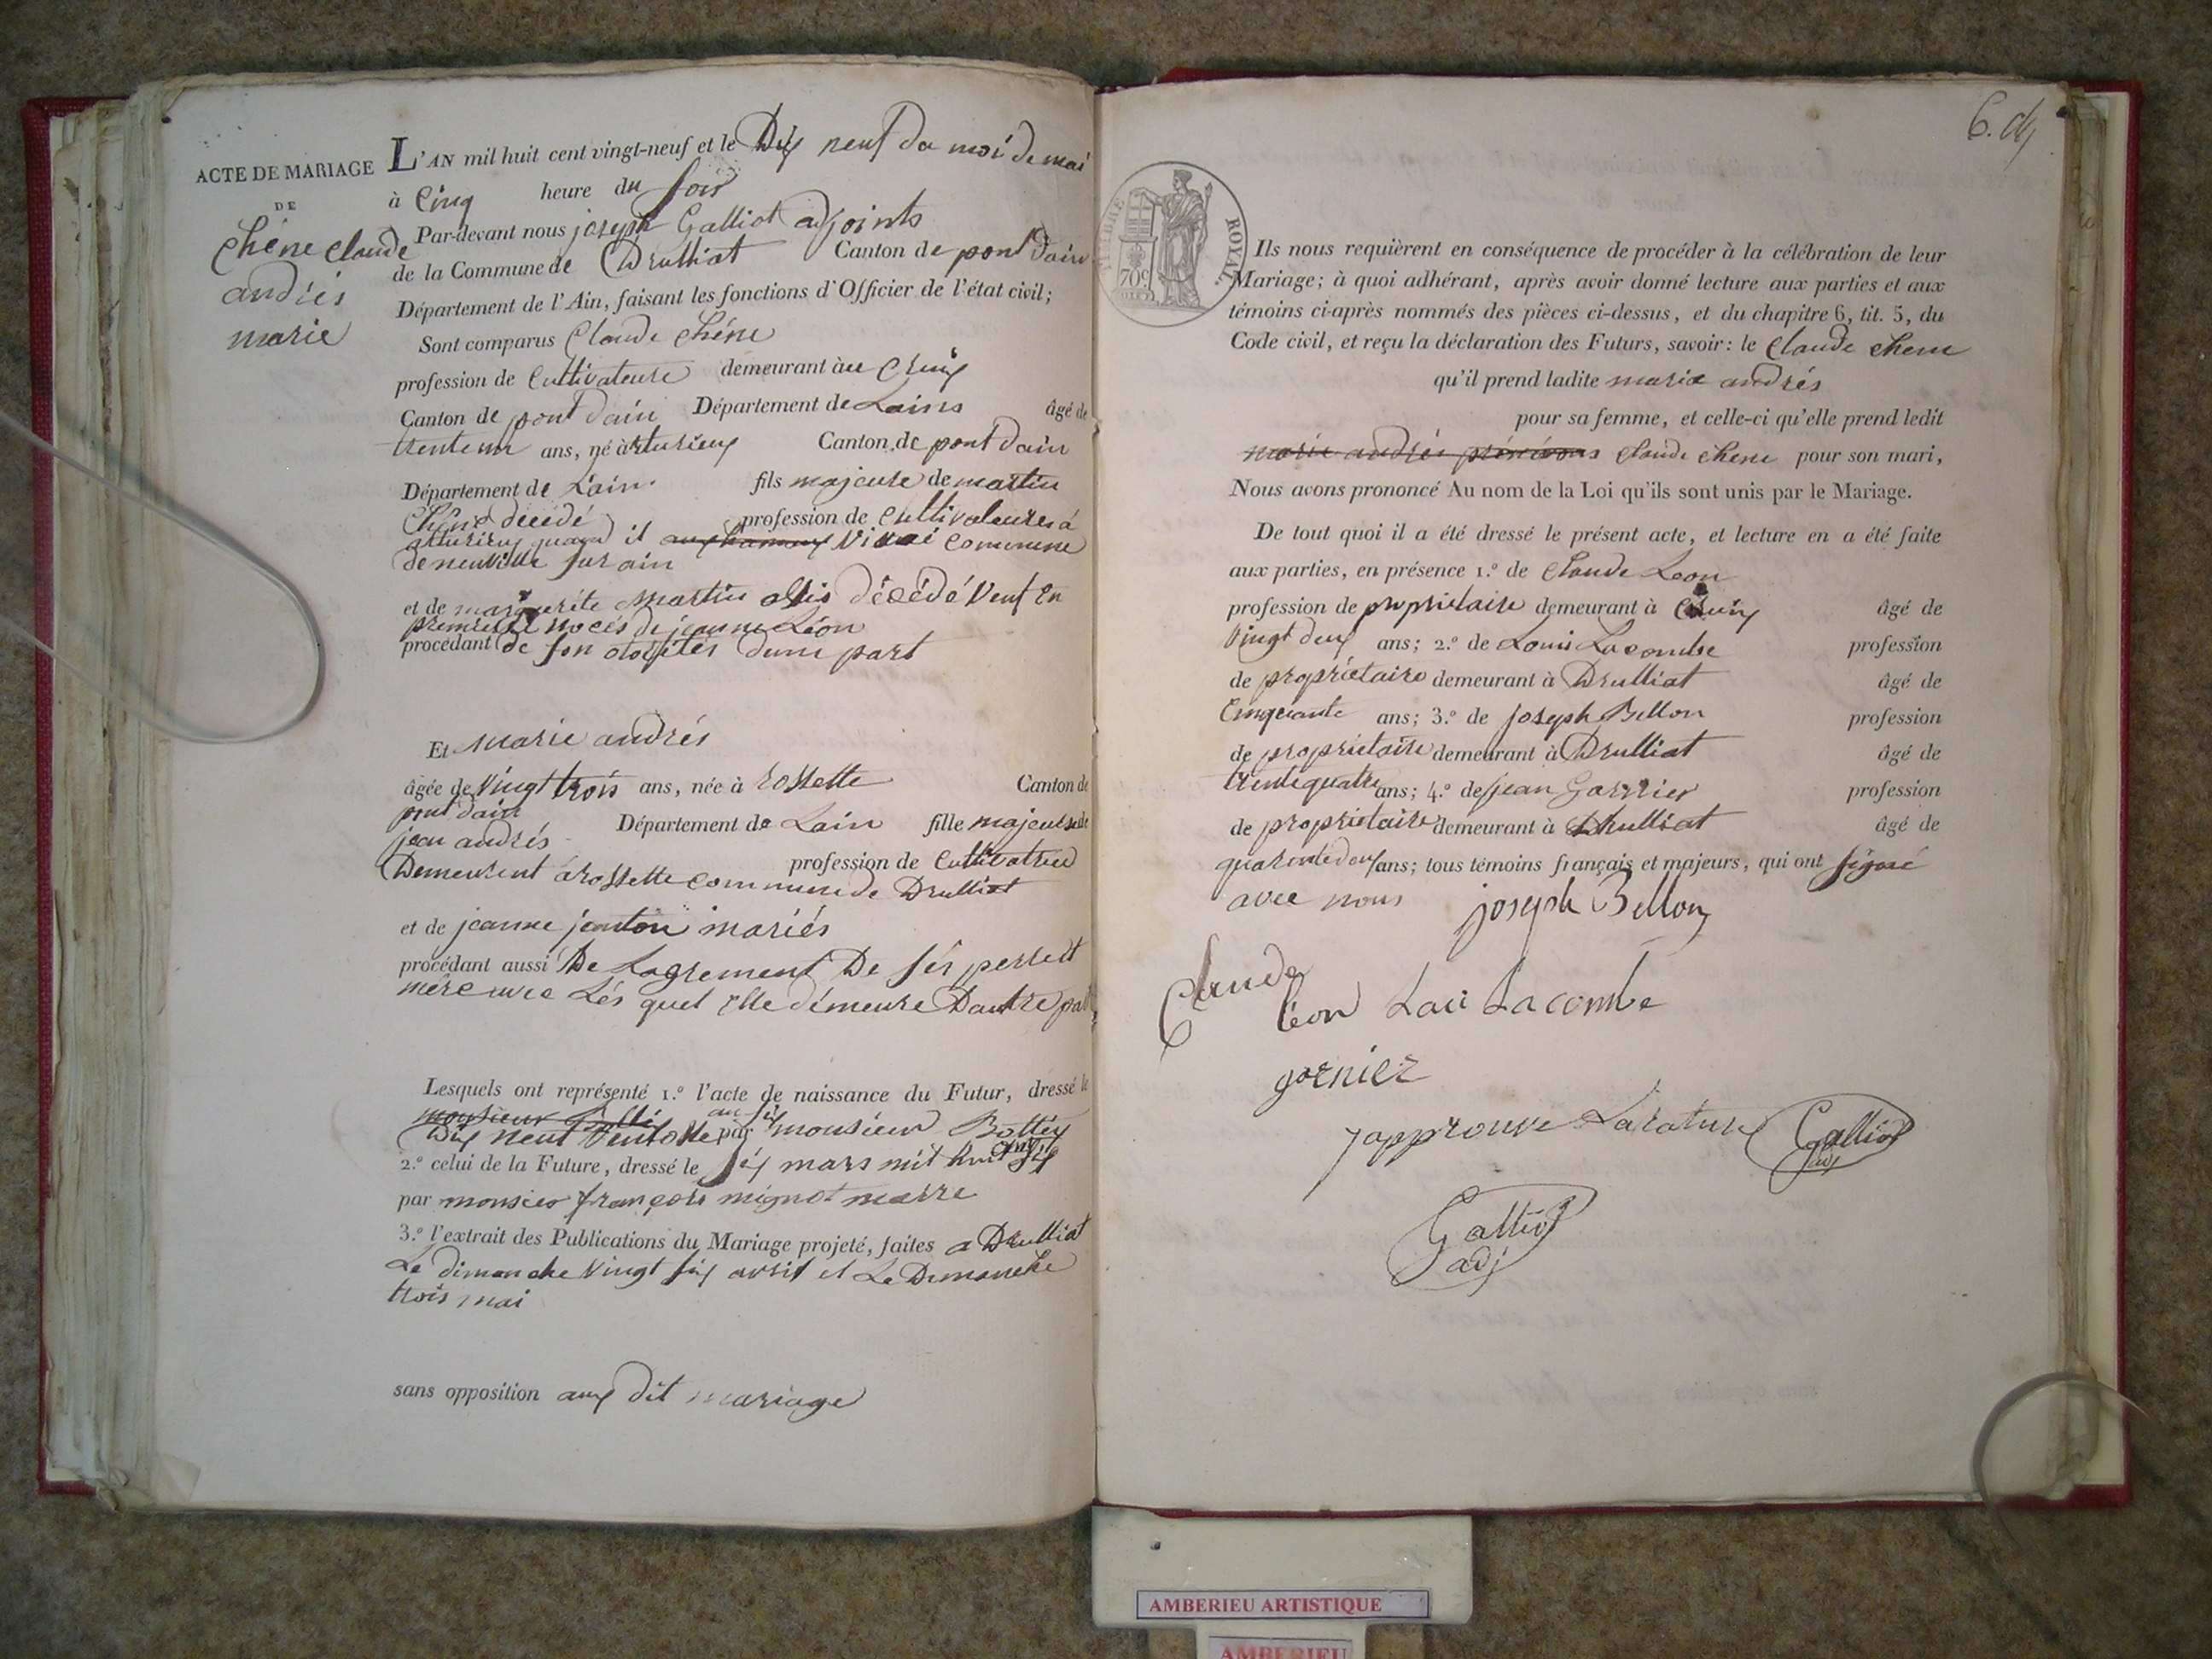 ACTE DE MARIAGE
DE
chêne claude
andrés
marie
L'AN mil huit cent vingt-neuf et le Dix neuf du moi de mai
à Cinq heure du soir
Par-devant nous joseph Galliot adjoints
de la Commune de Drulliat Canton de pont dain
Département de l'Ain, faisant les fonctions d'Officier de l'état civil;
Sont comparus Claude Chêne
profession de Cultivateure demeurant àu
Canton de pont dain Département de Lains âgé de
trente un ans, né à Canton de pont dain
Département de Lain fils majeure de martin
Chêne décédé profession de Cultivateures à
quand il commune
de neuville sur ain
et de marguerite Martin décédé Veuf En
premiere noces de jeanne Léon
procédant de son dune part
Et Marie andrés
âgée de Vingt trois ans, née à rossette Canton de
pont dain Département de Lain fille majeure de
jean andrés
profession de Cultivatrice
Demeurent à rossette commune de Drulliat
et de jeanne mariés
procédant aussi De Lagrement De sés perre et
mère avec Lés quel Elle démeure Dautre part
Lesquels ont représenté 1.º l'acte de naissance du Futur, dressé le
Dix neuf Ventose an six par monsieur
2.º celui de la Future, dressé le six mars mil huit cent six
par monsieur françois mignot marre
3.º l'extrait des Publications du Mariage projeté, faites a Drulliat
Le dimanche Vingt six avril et Le Dimanche
trois mai
sans opposition aux dit mariage
6.
TIMBRE ROYAL
70c
Ils nous requièrent en conséquence de procéder à la célébration de leur
Mariage; à quoi adhérant, après avoir donné lecture aux parties et aux
témoins ci-après nommés des pièces ci-dessus, et du chapitre 6, tit. 5, du
Code civil, et reçu la déclaration des Futurs, savoir: le Claude chene
qu'il prend ladite marie andrés
pour sa femme, et celle-ci qu'elle prend ledit
marie andrés Claude chene pour son mari,
Nous avons prononcé Au nom de la Loi qu'ils sont unis par le Mariage.
De tout quoi il a été dressé le présent acte, et lecture en a été faite
aux parties, en présence 1.º de Claude Leon
profession de propriétaire demeurant à âgé de
Vingt deux ans; 2.º de Louis Lacombe profession
de propriétaire demeurant à Drulliat âgé de
Cinquante ans; 3.º de Joseph Bellon profession
de propriétaire demeurant à Drulliat âgé de
trente quatre ans; 4.º de jean Garnier profession
de propriétaire demeurant à Drulliat âgé de
quarente deux ans; tous témoins français et majeurs, qui ont signé
avec nous joseph Bellon
Claude
léon Laui Lacombe
garnier
japprouve Larature Galliot
adj
Galliot
adj
AMBERIEU ARTISTIQUE
AMBERIEU